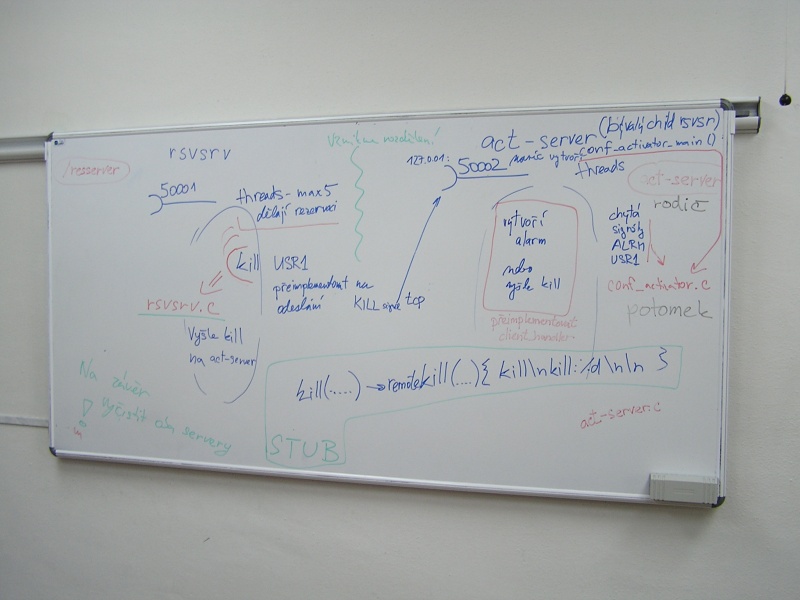 rsvsrv
/resserver
50001
threads - max 5
dělají rezervaci
kill
USR1
přeimplementovat na
odeslání KILL signál TCP
rsvsrv.c
Vyšle kill
na act-server
Na závěr
! vyčistit oba servery
act-server (bývalý child rsvsrv)
127.0.0.1:
50002
navíc vytvoří conf_activator_main()
threads
act-server
rodič
vytvoří
alarm
nebo
vyšle kill
přeimplementovat
client_handler
chytá
signály
ALRM
USR1
conf_activator.c
potomek
kill(.....) → remotekill(....){ kill\nkill:%d\n\n }
STUB
act-server.c